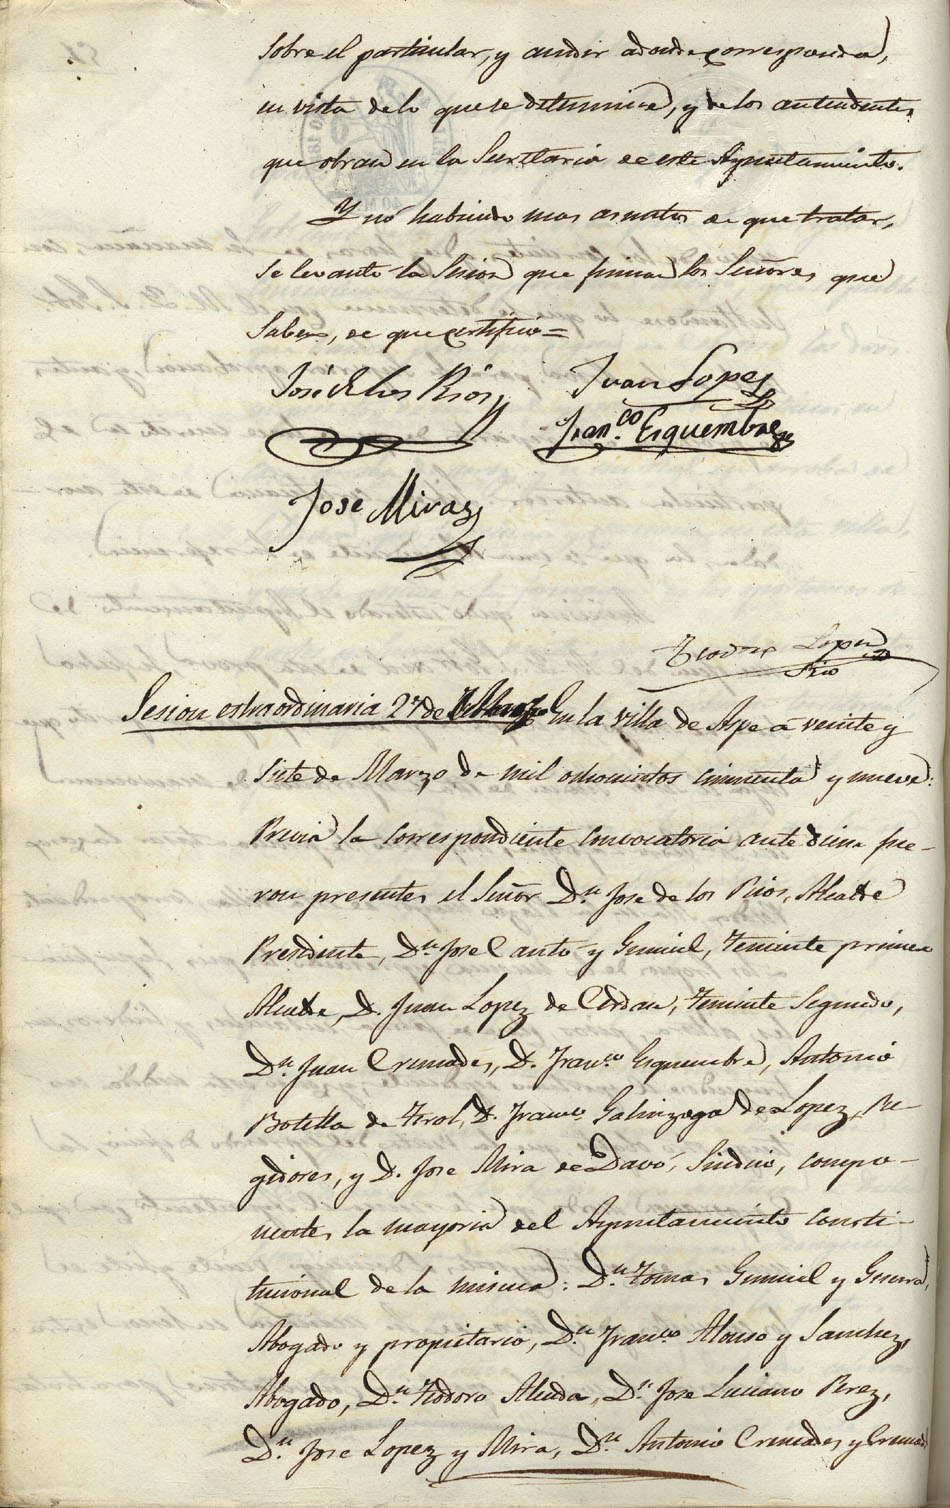 sobre el particular, y acudir adonde corresponda,
en vista de lo que se determine, y de los antecedentes
que obran en la Secretaria de este Ayuntamiento.
Y no habiendo mas asuntos de que tratar,
se levantó la Sesion que firman los Señores que
saben, de que certifico =
José de los Rios
Juan Lopez
Fran.co Esquembre
Jose Mira
Teodoro Lopez
Srio
Sesion estraordinaria 27 de Marzo En la villa de Aspe á veinte y
siete de Marzo de mil ochocientos cincuenta y nueve:
Previa la correspondiente convocatoria ante diem fue-
ron presentes el Señor Dn Jose de los Rios, Alcalde
Presidente, Dn Jose Cantó y Gumiel, teniente primero
Alcalde, D. Juan Lopez de Cerdan, teniente Segundo,
Dn Juan Cremades, D. Franco Esquembre, Antonio
Botella de Terol, D. Franco Galinzoga de Lopez, Re-
gidores, y D. Jose Mira de Davó, Sindico, compo-
nentes la mayoria del Ayuntamiento consti-
tucional de la misma: Dn Tomas Gumiel y Guerra,
Abogado y propietario, Dn Franco Alonso y Sanchez,
Abogado, Dn Teodoro Alenda, Dn Jose Luciano Perez,
Dn Jose Lopez y Mira, Dn Antonio Cremades y